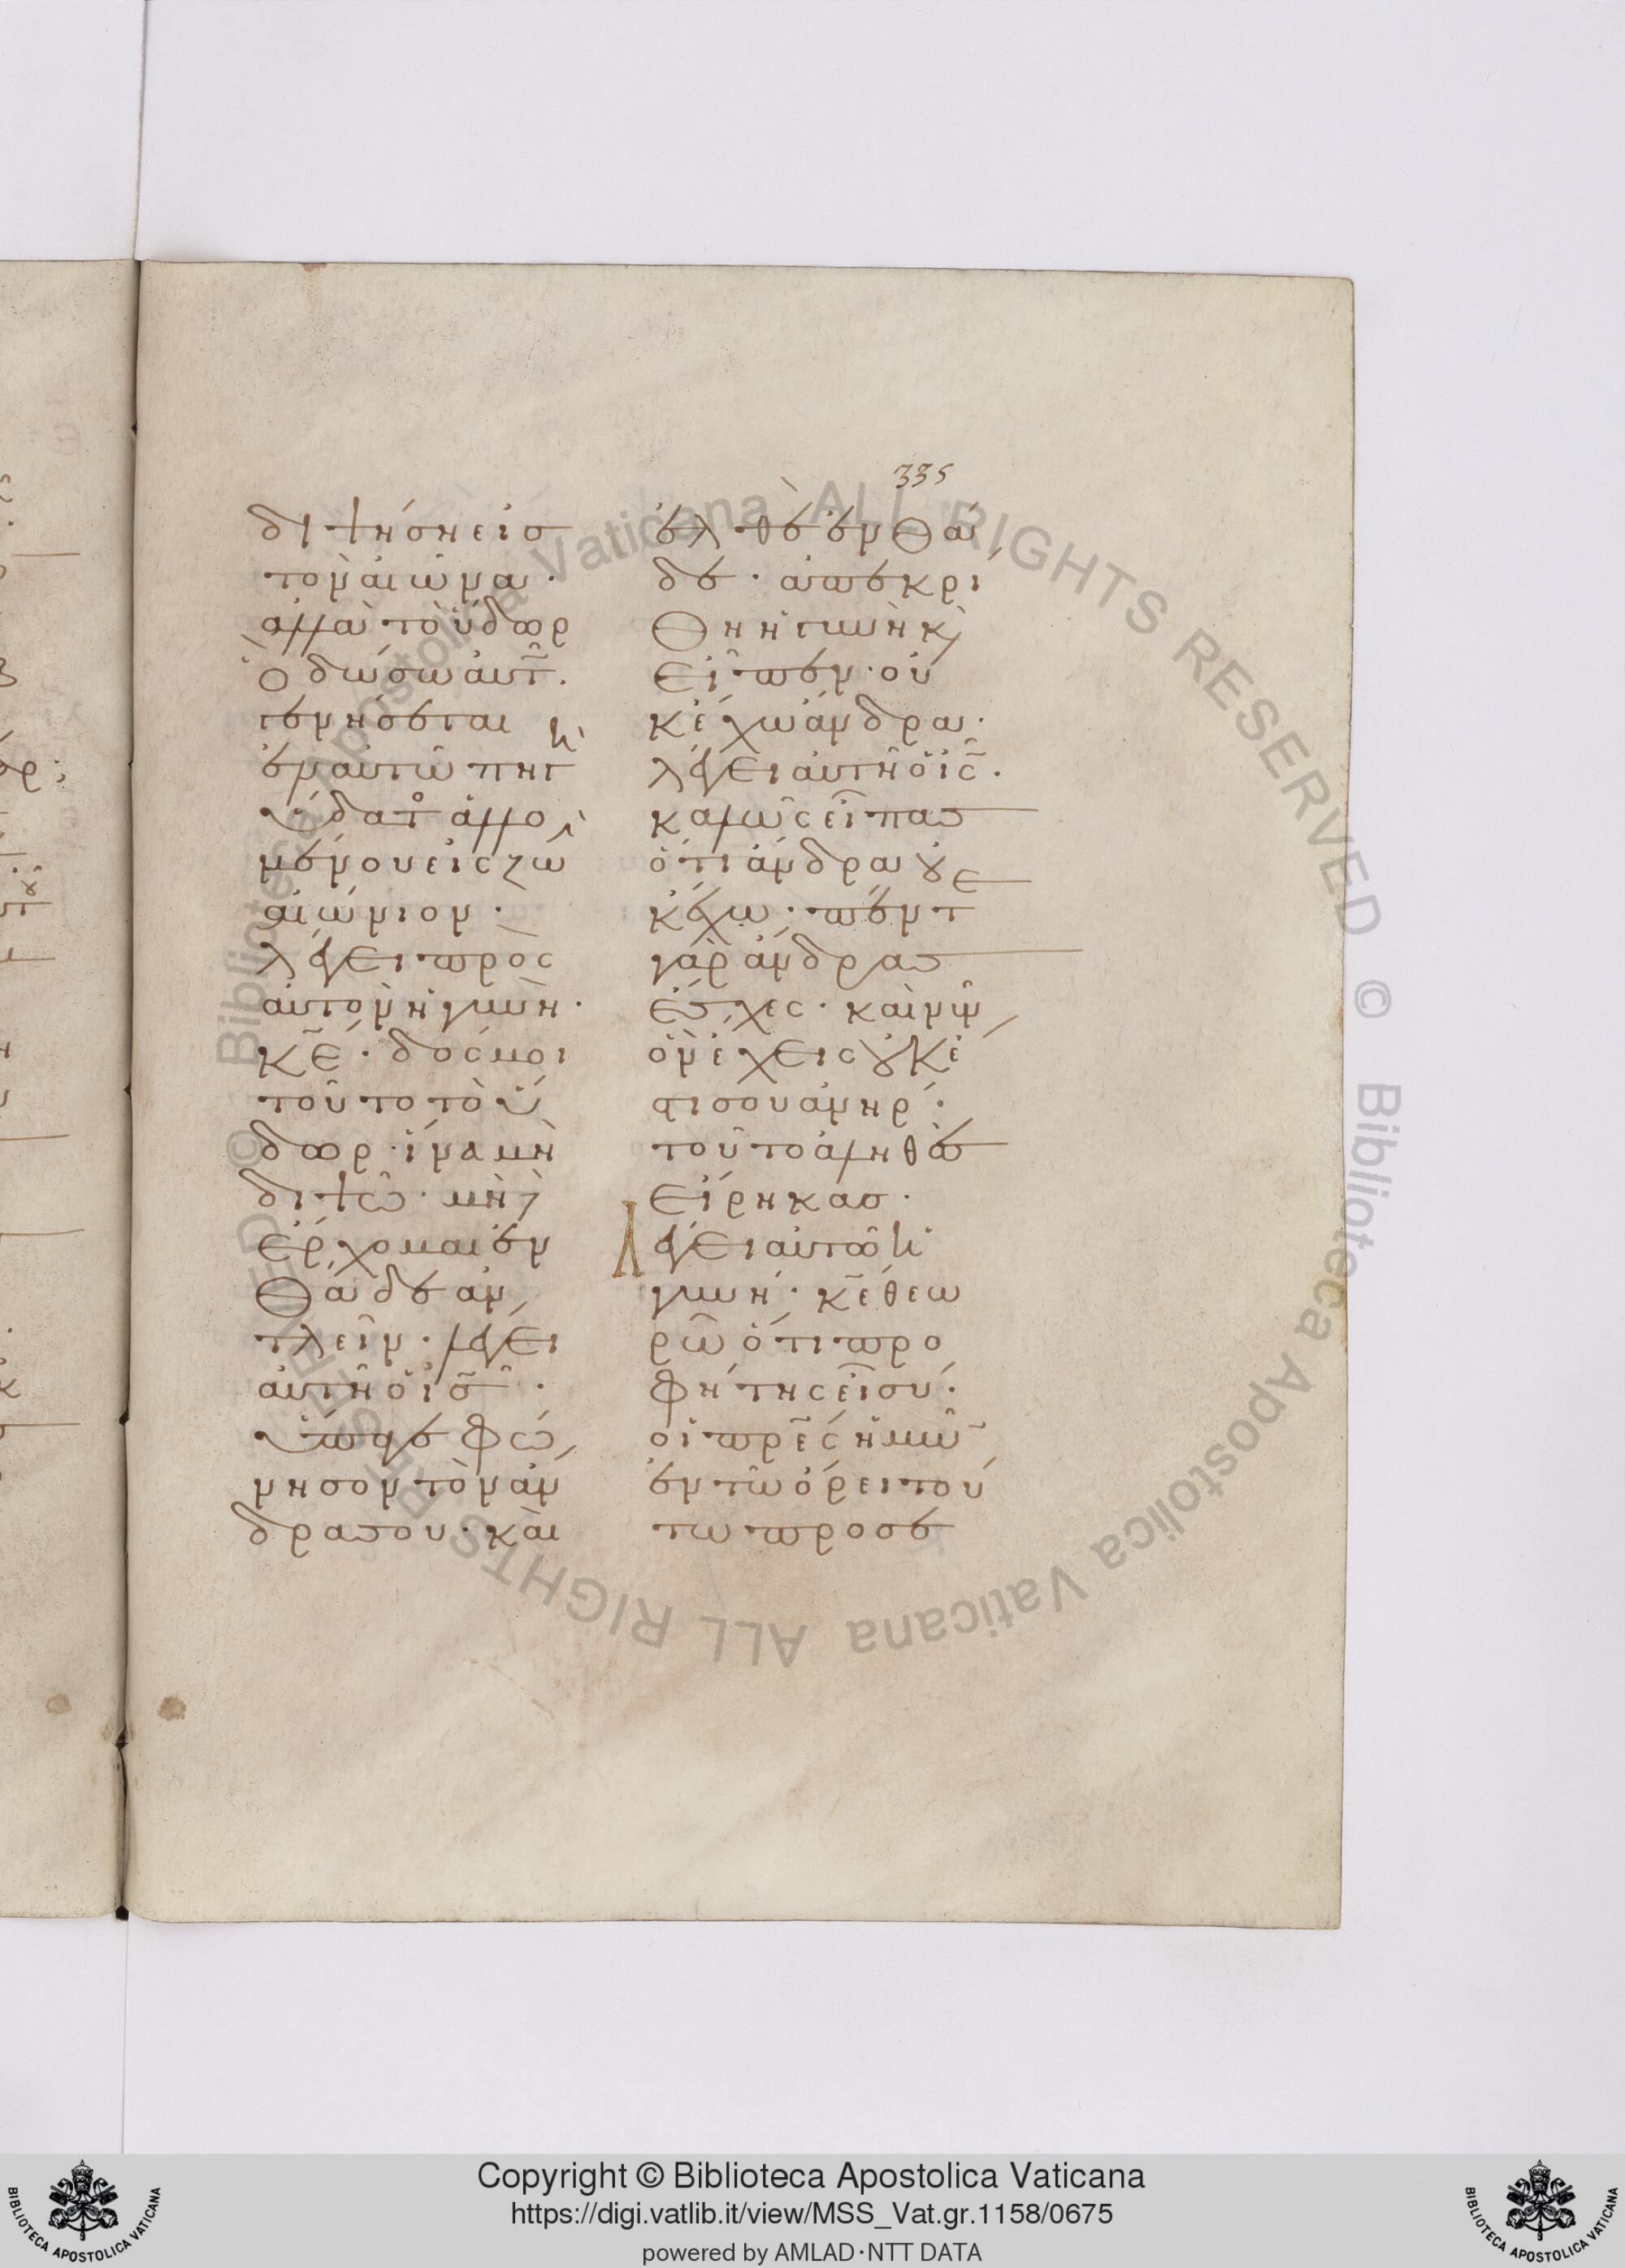 335
διψήσηεἰσ
τὸναἰῶνα·
ἀλλὰτὸὕδωρ
ὃδώσωἀυτῶ.
γενήσεται
ἐναὐτῶπηγὴ
ὕδατοσἁλλο
μένουεἰςζωὴν
αἰώνιον·
λέγειπρὸς
αὐτὸνἡγυνὴ·
κε̄·δόςμοι
τοῦτοτὸὕ
δωρ·ἵναμὴ
διψῶ·μηδὲ
ἔρχομαιἐν
θάδεἀν
τλεῖν·λέγει
αὐτῆὁις̄·
ὕπαγεφώ
νησοντὸνἄν
δρασου·καὶ
ἐλθὲἐνθά
δε·ἀπεκρί
θηἡγυνὴκ̀
εἶπεν·οὐ
κἔχωἄνδρα·
λέγειαὐτῆὁις̄.
καλῶςεἶπασ
ὅτιἄνδραȣ
κἔχω·πέντε
γὰρἄνδρασ
ἔσχες·καὶνῦν
ὃνἔχειςȣκἔ
στισουἀνήρ·
τοῦτοἀληθὲσ
εἴρηκασ·
Λέγειαὐτῶἡ
γυνή·κε̄θεω
ρῶὅτιπρο
φήτηςεἶσύ·
οἱπρε̄ςἡμῶν
ἐντῶὄρειτού
τωπροσε
Copyright © Biblioteca Apostolica Vaticana
https://digi.vatlib.it/view/MSS_Vat.gr.1158/0675
powered by AMLAD·NTT DATA
© Biblioteca Apostolica Vaticana ALL RIGHTS RESERVED
© Biblioteca Apostolica Vaticana ALL RIGHTS RESERVED
BIBLIOTECA APOSTOLICA VATICANA
BIBLIOTECA APOSTOLICA VATICANA